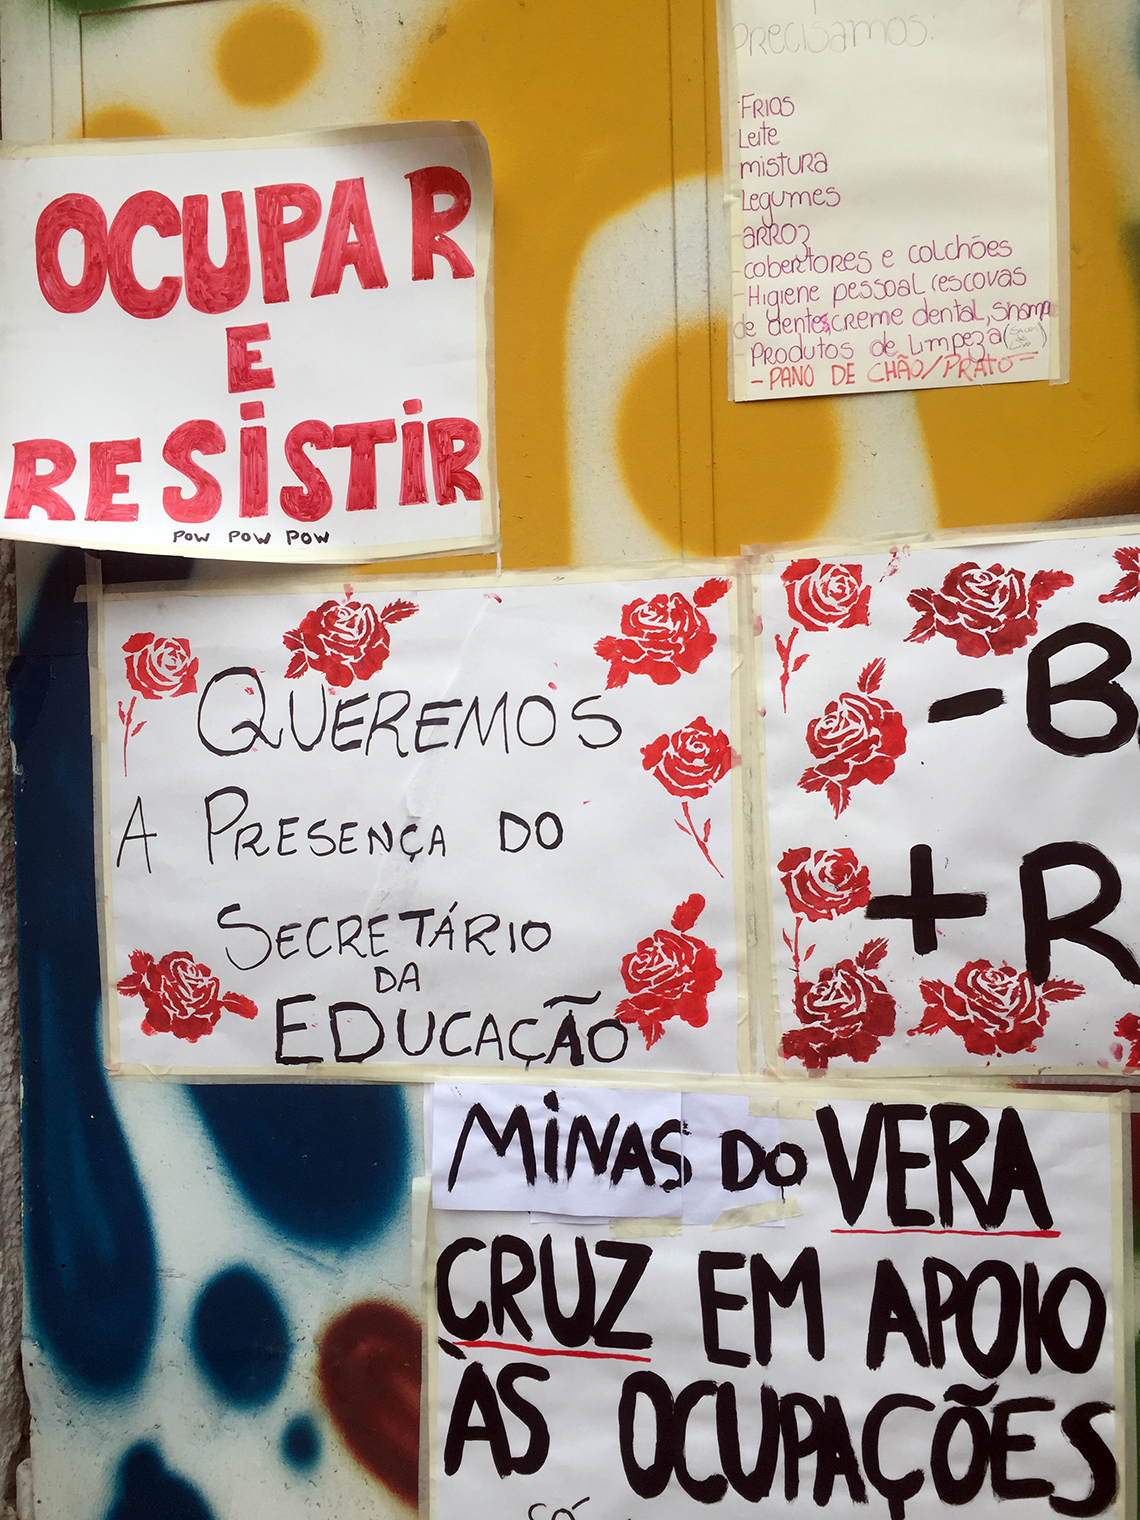 OCUPAR
E
RESISTIR
POW POW POW
Precisamos:
-Frios
-Leite
-mistura
-Legumes
-arroz
-cobertores e colchões
-Higiene pessoal (escovas
de dentes, creme dental, shamp
-Produtos de Limpeza
- PANO DE CHÃO/PRATO
QUEREMOS
A PRESENÇA DO
SECRETÁRIO
DA
EDUCAÇÃO
- B
+ R
MINAS DO VERA
CRUZ EM APOIO
ÀS OCUPAÇÕES